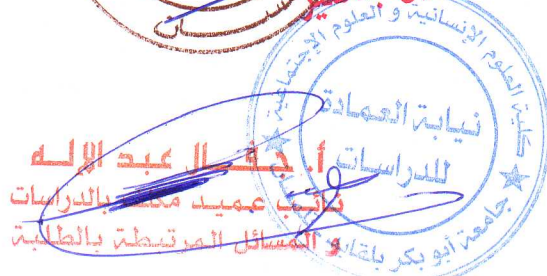 كلية العلوم الإنسانية و العلوم الإجتماعية
نيابة العمادة
للدراسات
جامعة أبو بكر بلقايد
أ. جـفـال عبد الإلـه
نائب عميد مكلف بالدراسات
و المسائل المرتبطة بالطلبة